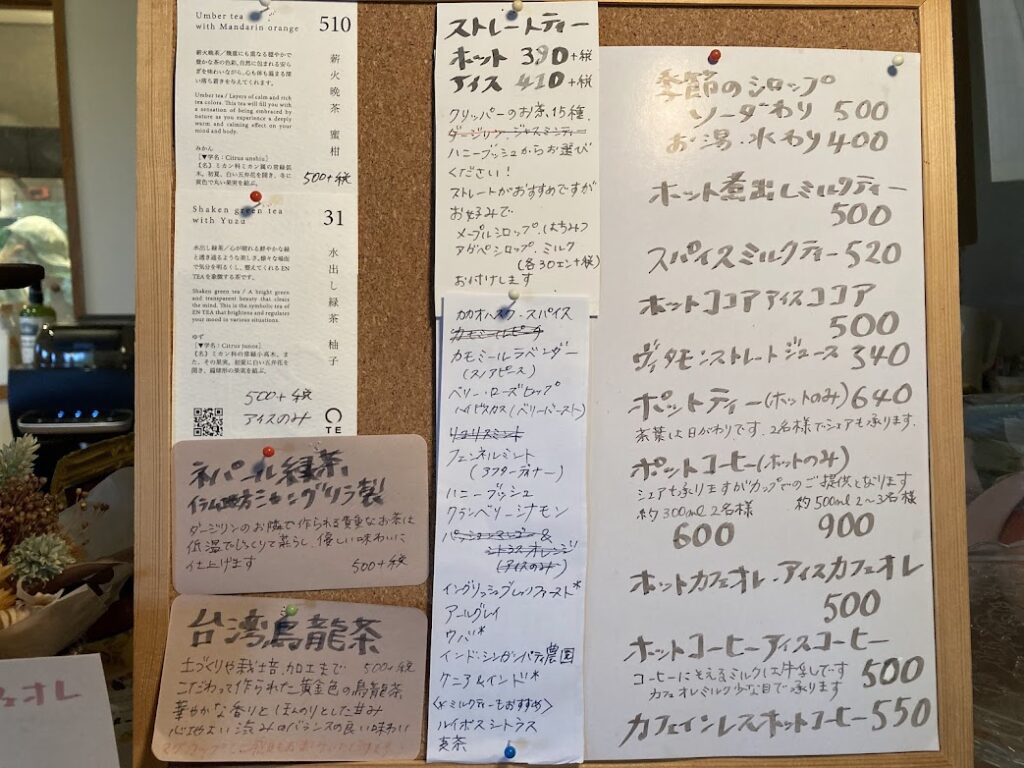 Umber tea
with Mandarin orange
510
薪火晩茶 蜜柑
薪火晩茶／幾重にも重なる穏やかで
豊かな茶の色彩。自然に包まれる安ら
ぎを味わいながら、心も体も温まる深
い落ち着きを与えてくれます。
Umber tea / Layers of calm and rich
tea colors. This tea will fill you with
a sensation of being embraced by
nature as you experience a deeply
warm and calming effect on your
mind and body.
みかん
[▼学名：Citrus unshiu]
《名》ミカン科ミカン属の常緑低
木。初夏、白い五弁花を開き、冬に
黄色で丸い果実を結ぶ。
500+税
Shaken green tea
with Yuzu
31
水出し緑茶 柚子
水出し緑茶／心が晴れる鮮やかな緑
と透き通るような美しさ。様々な場面
で気分を明るくし、整えてくれるEN
TEAを象徴する茶です。
Shaken green tea / A bright green
and transparent beauty that clears
the mind. This is the symbolic tea of
EN TEA that brightens and regulates
your mood in various situations.
ゆず
[▼学名：Citrus junos]
《名》ミカン科の常緑小高木。ま
た、その果実。初夏に白い五弁花を
開き、扁球形の果実を結ぶ。
500+税
アイスのみ
TE
ネパール緑茶
イラム地方シャングリラ製
ダージリンのお隣で作られる貴重なお茶は
低温でじっくりて蒸らし、優しい味わいに
仕上げます 500+税
台湾烏龍茶
土づくりや栽培、加工まで 500+税
こだわって作られた黄金色の烏龍茶
華やかな香りとほんのりとした甘み
心地よい渋みのバランスの良い味わい
ストレートティー
ホット 390+税
アイス 410+税
クリッパーのお茶、15種、
ダージリン ジャスミンティー
ハニーブッシュからお選び
ください！
ストレートがおすすめですが
お好みで
メープルシロップ、はちみつ
アガベシロップ、ミルク
(各30エン+税)
お付けします
カカオハスク・スパイス
カモミールピーチ
カモミールラベンダー
(スノアピース)
ベリー・ローズヒップ
ハイビスカス(ベリーバースト)
リコリスミント
フェンネルミント
(アフターディナー)
ハニーブッシュ
クランベリーシナモン
パッションマンゴー &
シトラスオレンジ
(アイスのみ)
イングリッシュブレックファースト*
アールグレイ
ウバ*
インド:シンガンパティ農園
ケニア&インド*
〈*ミルクティーもおすすめ〉
ルイボスシトラス
麦茶
季節のシロップ
ソーダわり 500
お湯・水わり 400
ホット煮出しミルクティー
500
スパイスミルクティー 520
ホットココア アイスココア
500
ヴィタモンストレートジュース 340
ポットティー(ホットのみ) 640
茶葉は日がわりです。2名様でシェアも承ります。
ポットコーヒー(ホットのみ)
シェアも承りますがカップでのご提供となります
約300ml 2名様 約500ml 2〜3名様
600 900
ホットカフェオレ・アイスカフェオレ
500
ホットコーヒー アイスコーヒー
コーヒーにそえるミルクは牛乳です 500
カフェオレミルク少な目で承ります
カフェインレスホットコーヒー 550
フェオレ